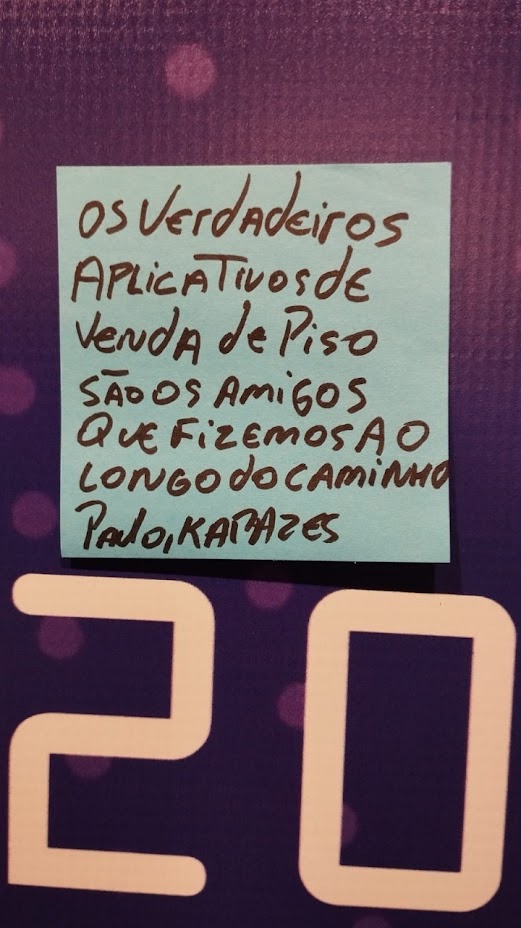 Os Verdadeiros
Aplicativos de
Venda de Piso
São os Amigos
Que Fizemos ao
Longo do Caminho
Paulo, KABAZES
20